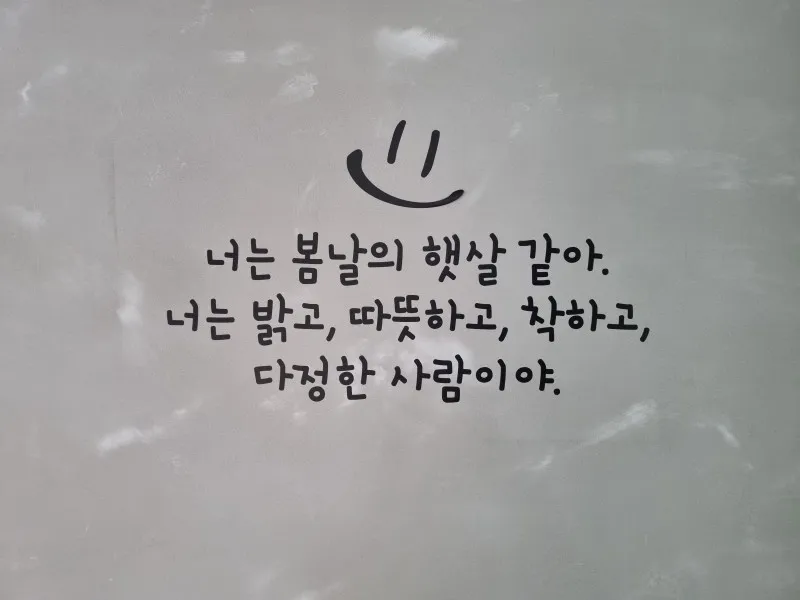 너는 봄날의 햇살 같아.
너는 밝고, 따뜻하고, 착하고,
다정한 사람이야.